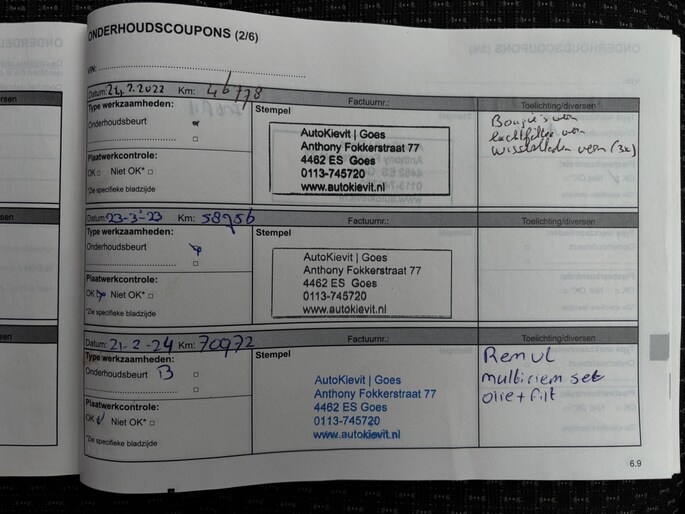 ONDERHOUDSCOUPONS (2/6)
VIN:
Datum: 24.2.2022 Km: 46778 Factuurnr.: Toelichting/diversen
Type werkzaamheden: Stempel
Onderhoudsbeurt
Bougie's vern
luchtfilter vern
wisselbladen vern (3x)
Plaatwerkcontrole:
OK □ Niet OK* □
*Zie specifieke bladzijde
AutoKievit | Goes
Anthony Fokkerstraat 77
4462 ES Goes
0113-745720
www.autokievit.nl
Datum: 23-3-23 Km: 58956 Factuurnr.: Toelichting/diversen
Type werkzaamheden: Stempel
Onderhoudsbeurt
Plaatwerkcontrole:
OK Niet OK* □
*Zie specifieke bladzijde
AutoKievit | Goes
Anthony Fokkerstraat 77
4462 ES Goes
0113-745720
www.autokievit.nl
Datum: 21-2-24 Km: 70972 Factuurnr.: Toelichting/diversen
Type werkzaamheden: Stempel
Onderhoudsbeurt B
Plaatwerkcontrole:
OK Niet OK* □
*Zie specifieke bladzijde
AutoKievit | Goes
Anthony Fokkerstraat 77
4462 ES Goes
0113-745720
www.autokievit.nl
Rem vl
multiriem set
olie + filt
6.9